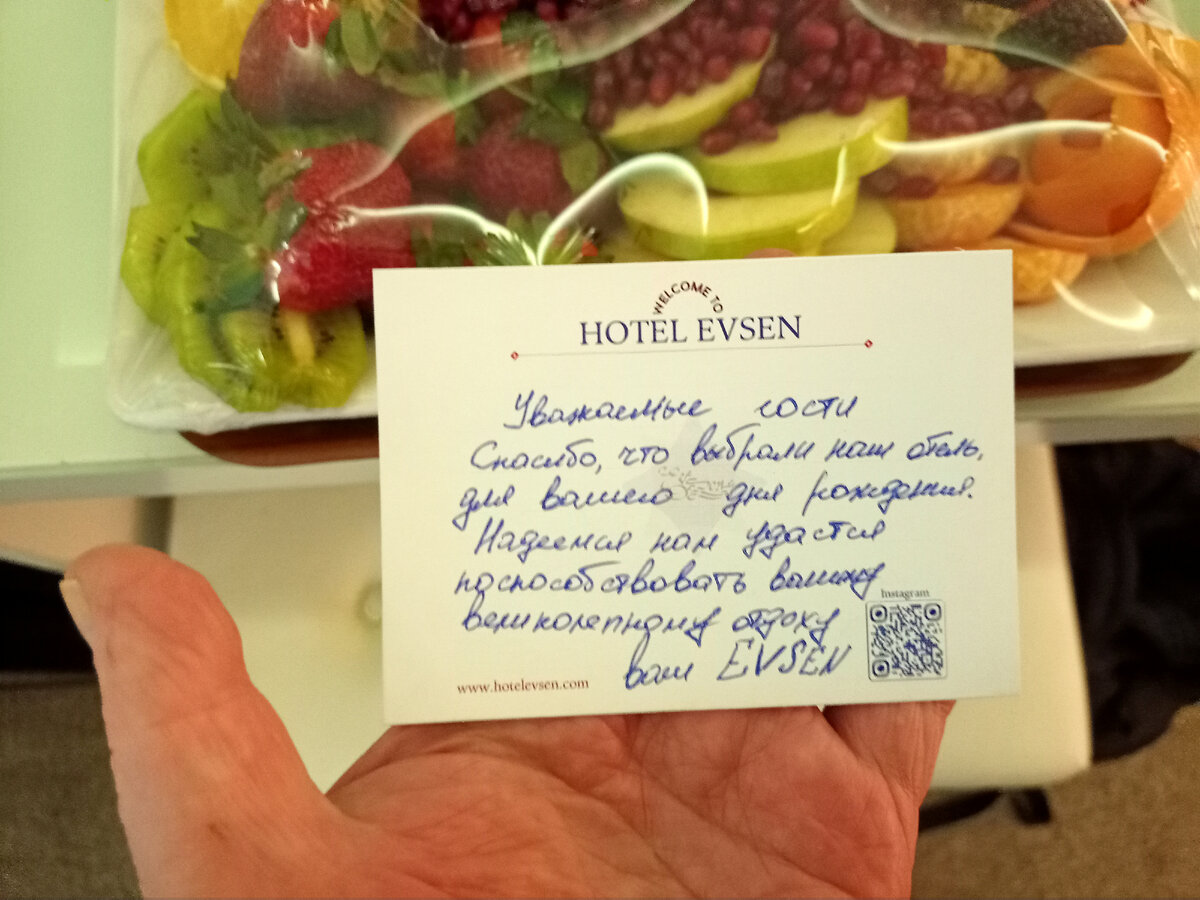 WELCOME TO
HOTEL EVSEN
Уважаемые гости
Спасибо, что выбрали наш отель,
для вашего дня рождения.
Надеемся нам удастся
поспособствовать вашему
великолепному отдоху
ваш EVSEN
Instagram
www.hotelevsen.com